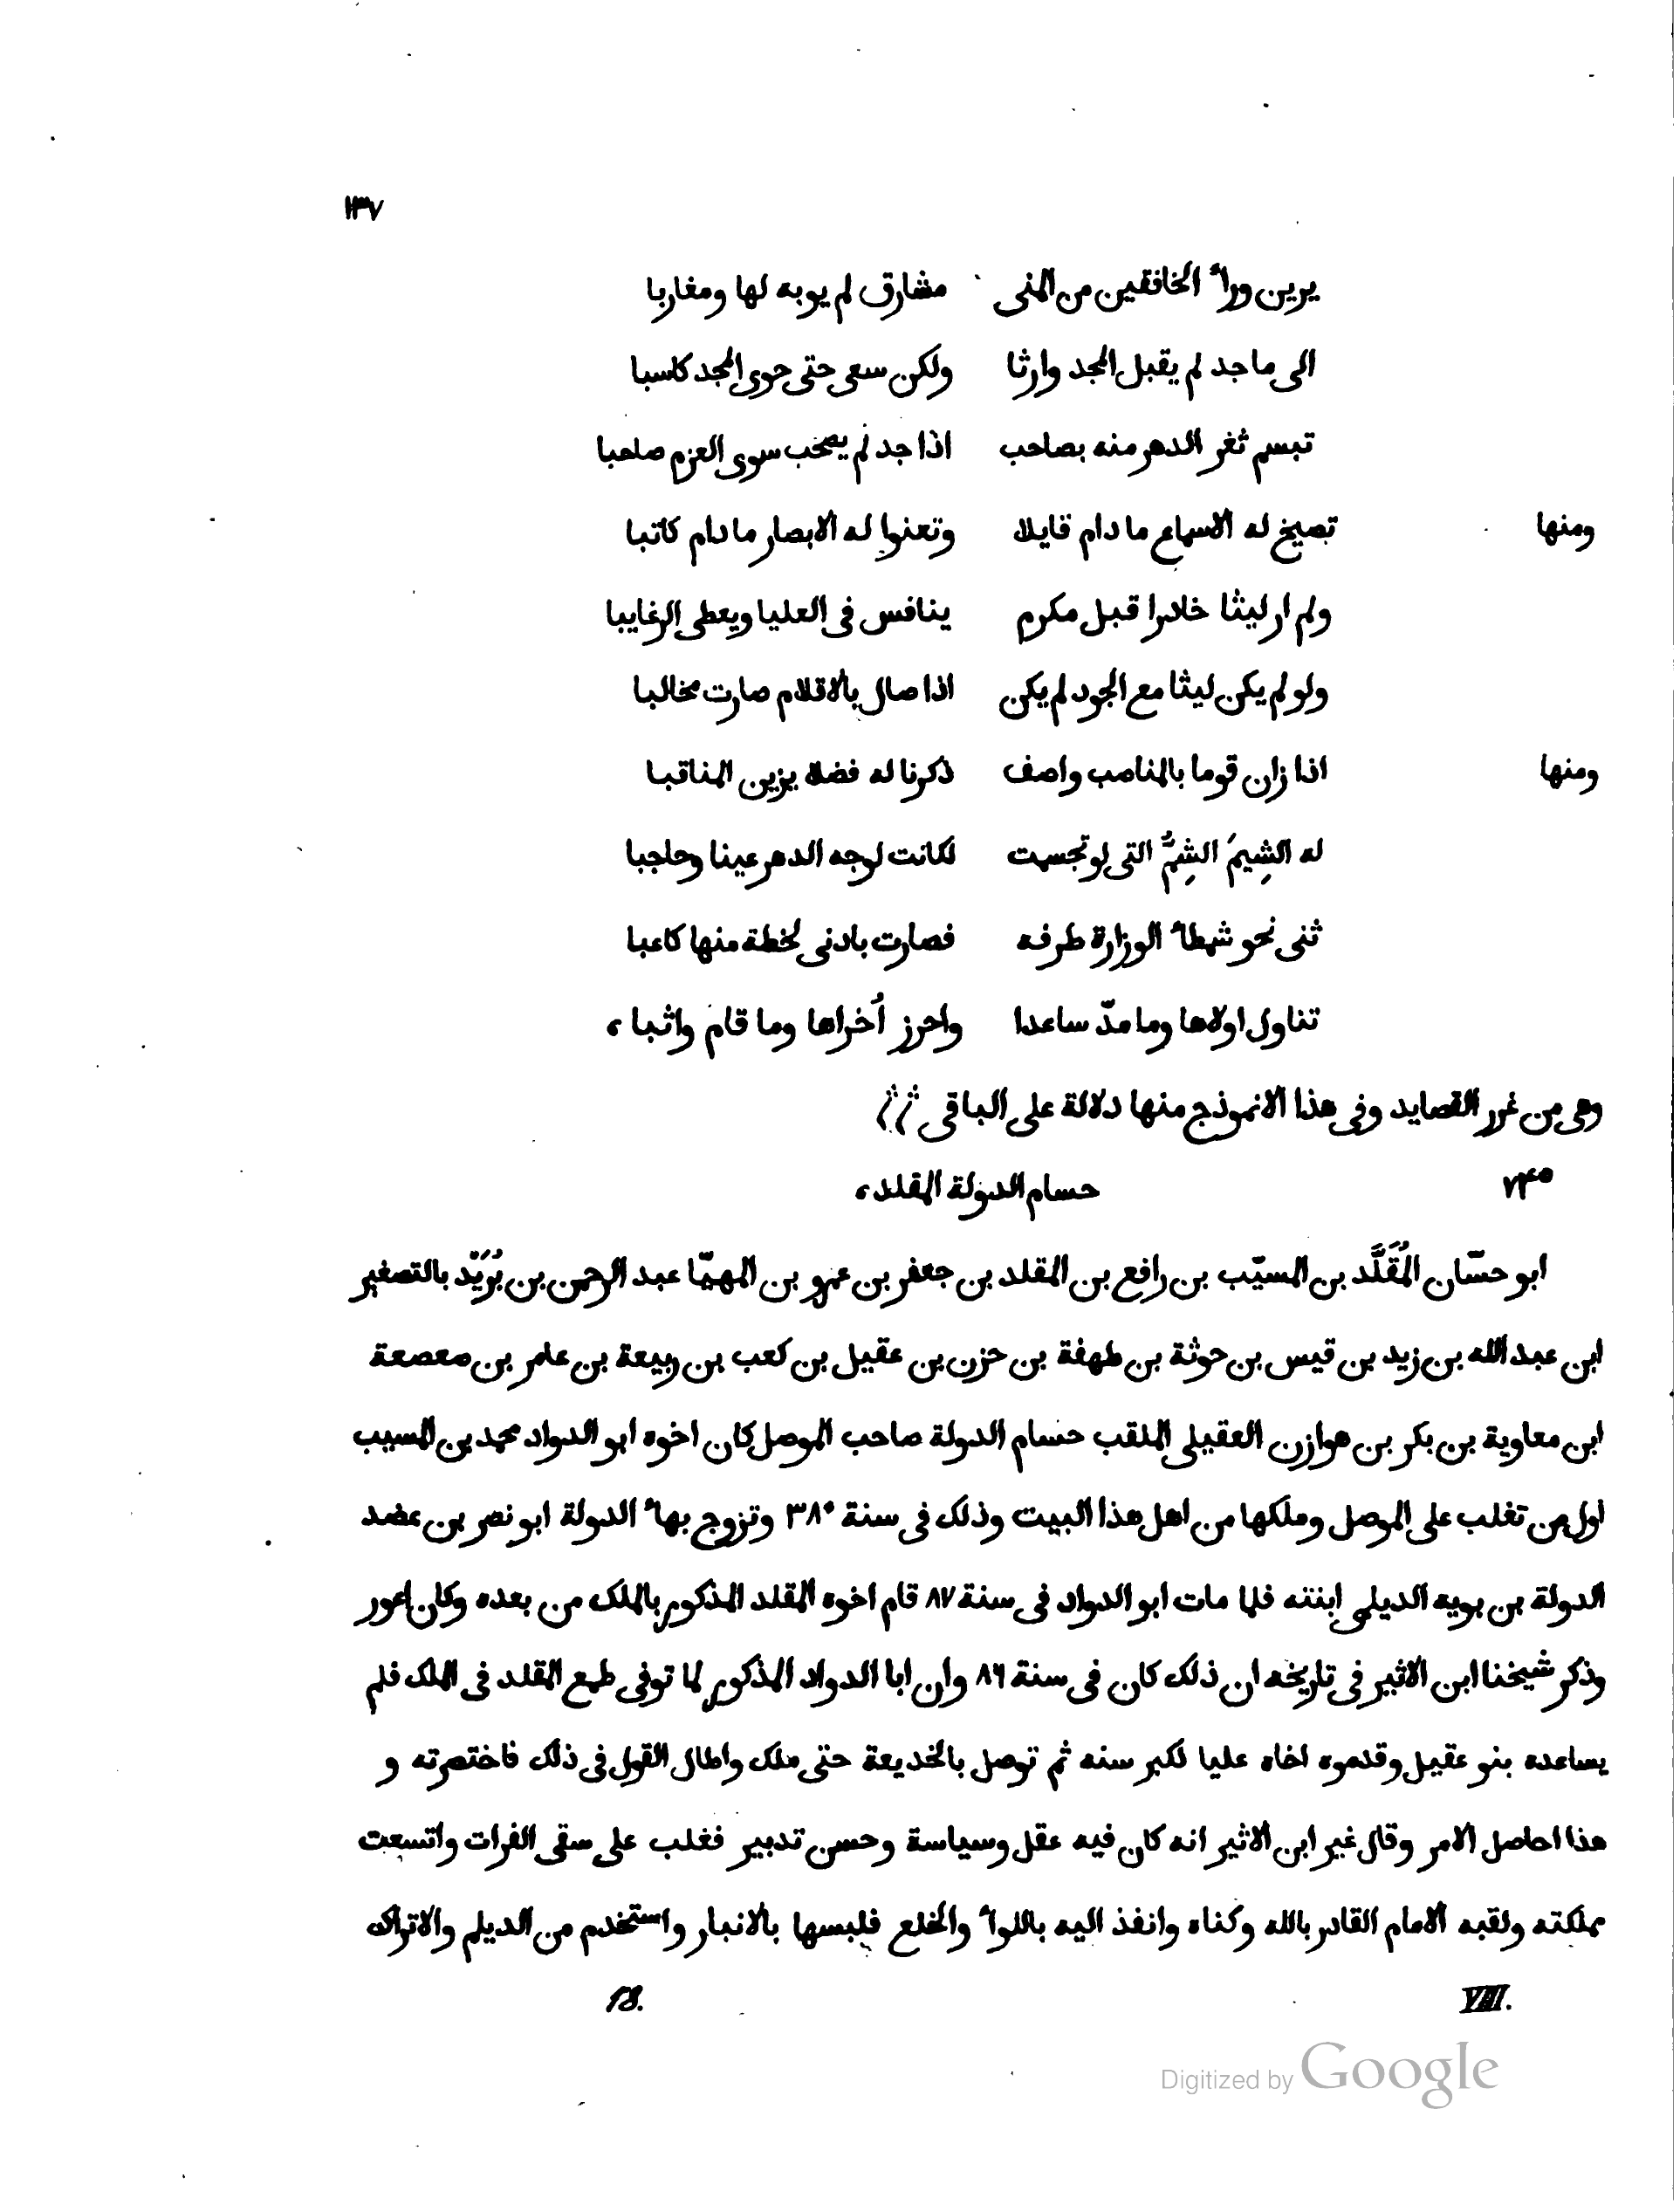 ١٣٧
يرين ورآء الخافقين من المنى مشارق لم يوبه لها ومغاربا
الى ماجد لم يقبل المجد وارثا ولكن سعى حتى حوى المجد كاسبا
تبسم ثغر الدهر منه بصاحب اذا جد لم يصحب سوى العزم صاحبا
ومنها تصيخ له الاسماع ما دام قايلا وتعنوا له الابصار ما دام كاتبا
ولم ار ليثا خادرا قبل مكرم ينافس فى العليا ويعطى الرغايبا
ولو لم يكن ليثا مع الجود لم يكن اذا صال بالاقلام صارت مخالبا
ومنها اذا زان قوما بالمناصب واصف ذكرنا له فضلا يزين المناقبا
له الشِيمَ الشِمُّ التى لو تجسمت لكانت لوجه الدهر عينا وحاجبا
ثنى نحو شمطآء الوزارة طرفه فصارت بادنى لحظة منها كاعبا
تناول اولاها وما مدّ ساعدا واحرز أُخراها وما قام واثبا ،
وهى من غرر القصايد وفى هذا الانموذج منها دلالة على الباقى
٧٤٥ حسام الدولة المقلد ،
ابو حسّان المُقَلَّد بن المسيّب بن رافع بن المقلد بن جعفر بن عمرو بن المهيّا عبد الرحمن بن بُرَيّد بالتصغير
ابن عبد الله بن زيد بن قيس بن حوثة بن طهفة بن حزن بن عقيل بن كعب بن ربيعة بن عامر بن صعصعة
ابن معاوية بن بكر بن هوازن العقيلى الملقب حسام الدولة صاحب الموصل كان اخوه ابو الدواد محمد بن المسيب
اول من تغلب على الموصل وملكها من اهل هذا البيت وذلك فى سنة ٣٨٠ وتزوج بهآء الدولة ابو نصر بن عضد
الدولة بن بويه الديلمى ابنته فلما مات ابو الدواد فى سنة ٨٧ قام اخوه المقلد المذكور بالملك من بعده وكان اعور
وذكر شيخنا ابن الاثير فى تاريخه ان ذلك كان فى سنة ٨٦ وان ابا الدواد المذكور لما توفى طمع المقلد فى الملك فلم
يساعده بنو عقيل وقدموه اخاه عليا لكبر سنه ثم توصل بالخديعة حتى ملك واطال القول فى ذلك فاختصرته و
هذا احاصل الامر وقال غير ابن الاثير انه كان فيه عقل وسياسة وحسن تدبير فغلب على سقى الفرات واتسعت
مملكته ولقبه الامام القادر بالله وكناه وانفذ اليه باللوآء والخلع فلبسها بالانبار واستخدم من الديلم والاتراك
VIII. 18.
Digitized by Google